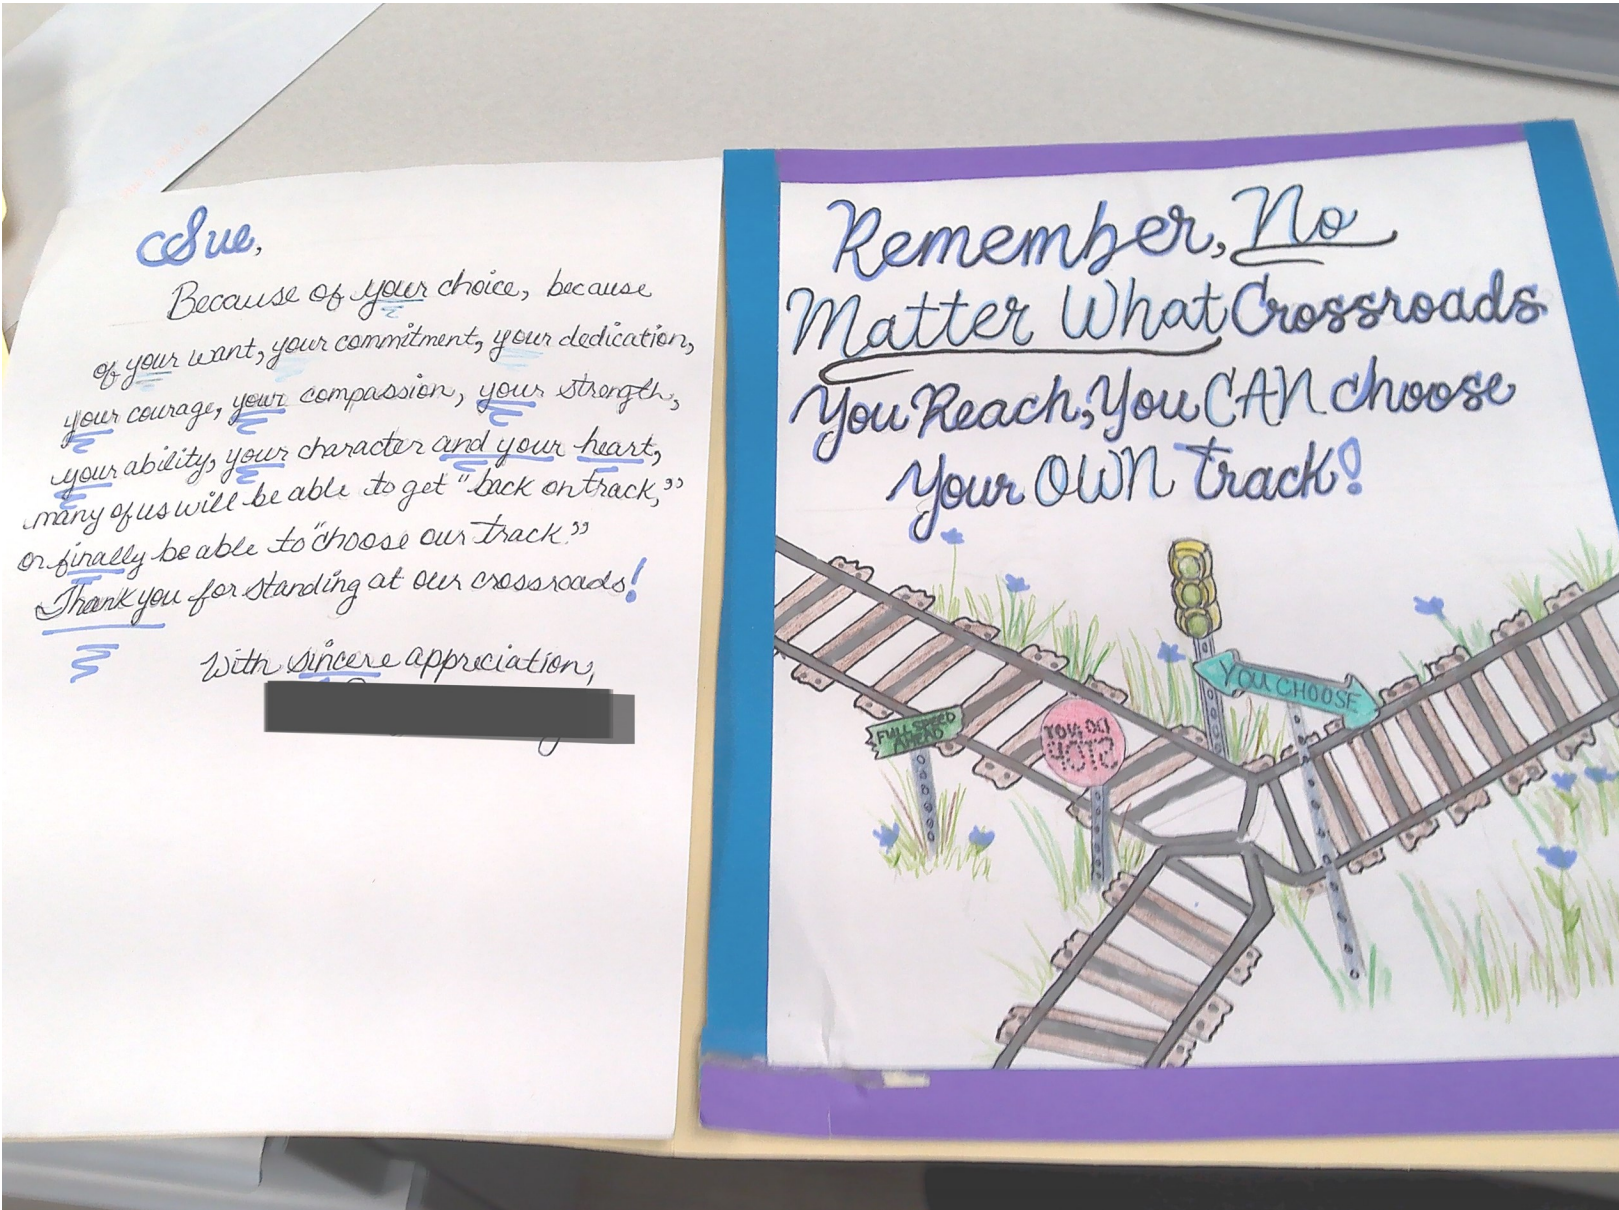 Sue,
Because of your choice, because
of your want, your commitment, your dedication,
your courage, your compassion, your strength,
your ability, your character and your heart,
many of us will be able to get "back on track,"
or finally be able to "choose our track."
Thank you for standing at our crossroads!
With sincere appreciation,
Remember, No
Matter What Crossroads
You Reach, You CAN choose
Your OWN track!
YOU CHOOSE
FULL SPEED
AHEAD